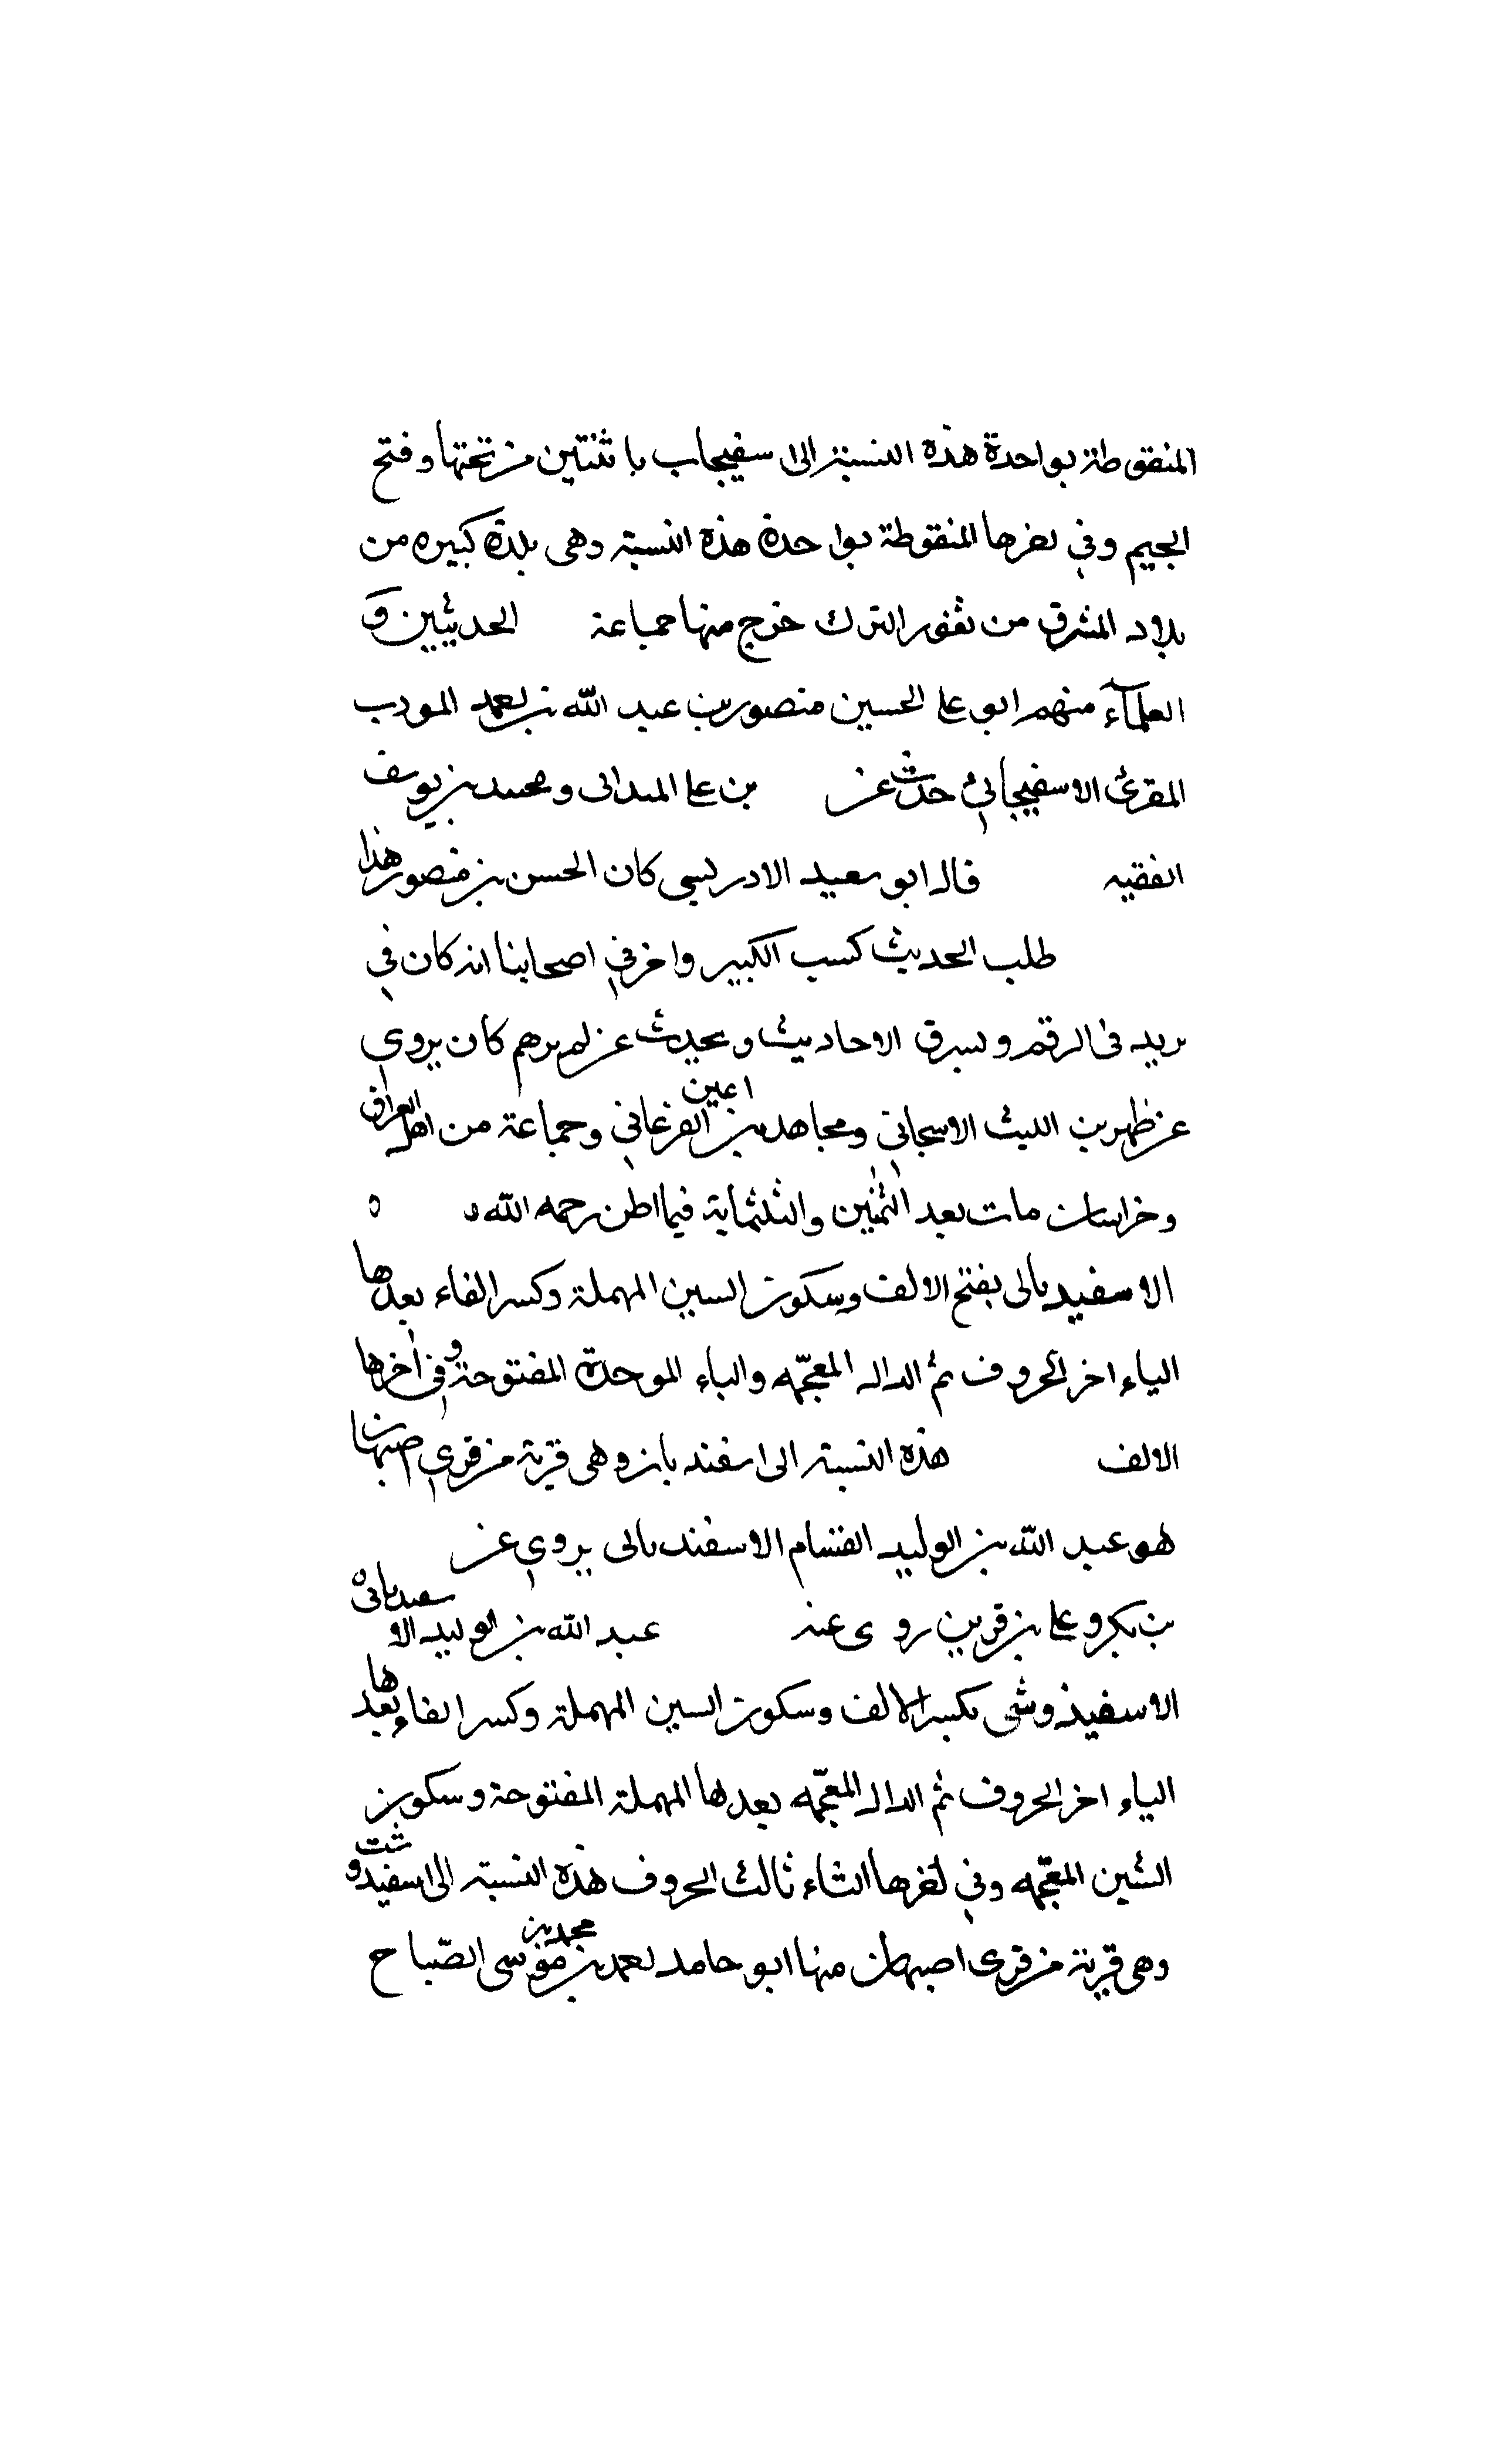 المنقوطة بواحدة هذه النسبة الى اسفيجاب باثنتين من تحتها وفتح
الجيم وفي اخرها المنقوطة بواحدة هذه النسبة وهى بلدة كبيره من
بلاد المشرق من ثغور الترك خرج منها جماعة الحديثين و
العلمآء منهم ابو على الحسين منصور بن عبد الله بن احمد المودب
المقرئ الاسفيجابي حدث عن بن على الميدانى ومحمد بن يوسف
الفقيه قال ابو سعيد الادريسي كان الحسن بن منصور هذا
طلب الحديث كسب الكبير واخرفي اصحابنا انه كان في
يريد فى الرقم ويسرق الاحاديث ويحدث عن لم يرهم كان يروي
عن ظهر بن الليث الاسبجاني ومجاهد بن اعين الفرغاني وجماعة من اهل العراق
وخراسان مات بعد الثمنين والثلثماية فيما اظن رحمه الله ه
الاسفيدبانى بفتح الالف وسكون السين المهملة وكسر الفاء بعدها
الياء اخر الحروف ثم الدال المعجمه والباء الموحدة المفتوحة وفي اخرها
الالف هذه النسبة الى اسفند بان وهى قرية من قرى اصبهان
هو عبد الله بن الوليد الاسفندبانى يروي عن
بن بكر وعلى بن قرين روى عنه عبد الله بن الوليد الاسفيدبانى ه
الاسفيذوشى بكسر الالف وسكون السين المهملة وكسر الفاء بعدها
الياء اخر الحروف ثم الدال المعجمه بعدها المهملة المفتوحة وسكون
الشين المعجمه وفي اخرها التاء ثالث الحروف هذه النسبة الى اسفيدوشت
وهى قرية من قرى اصبهان منها ابو حامد احمد بن محمد بن موسى الصباح